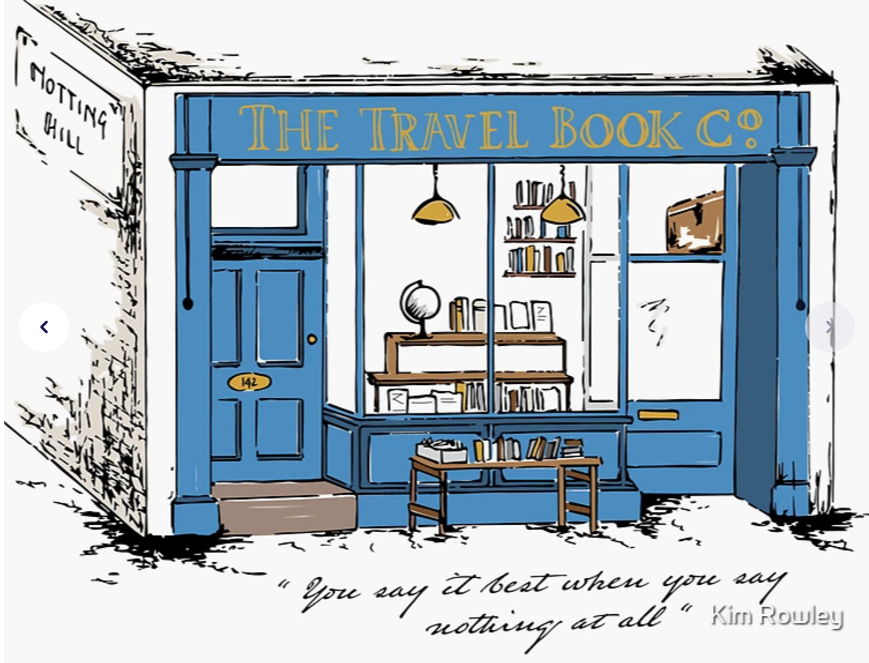 NOTTING
HILL
THE TRAVEL BOOK Cº
142
“ You say it best when you say
nothing at all “
Kim Rowley